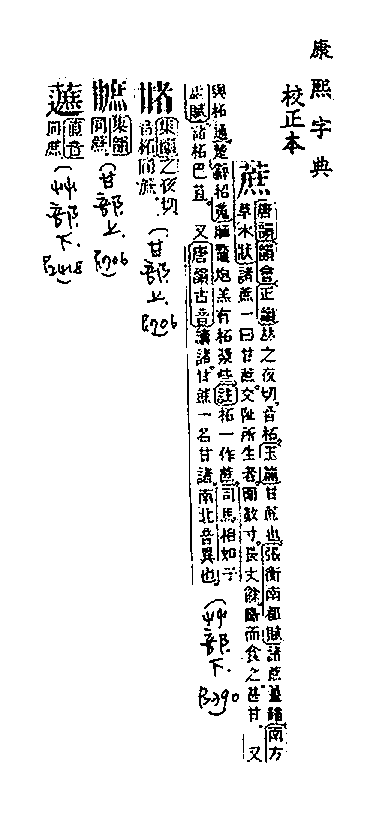 康熙字典
校正本
蔗 唐韻韻會正韻𠀤之夜切,音柘。玉篇甘蔗也。張衡南都賦諸蔗薑䪤。南方
草木狀諸蔗一曰甘蔗,交趾所生者,圍數寸,長丈餘,斷而食之,甚甘。又
與柘通。楚辭招䰟胹鼈炮羔有柘漿些。註柘一作蔗。司馬相如子
虛賦諸柘巴苴。又唐韻古音讀諸。甘蔗一名甘諸,南北音異也。
(艸部下. P390)
集韻之夜切
音柘同蔗
(甘部上. P706)
集韻
同蔗
(甘部上. P706)
同蔗
(艸部下. P2418)